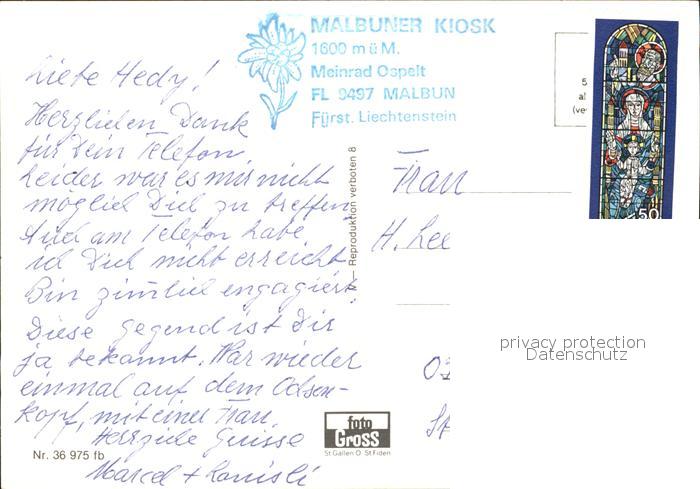 MALBUNER KIOSK
1600 m ü M.
Meinrad Ospelt
FL 9497 MALBUN
Fürst. Liechtenstein
Liebe Hedy!
Herzlichen Dank
für Dein Telefon.
Leider war es mir nicht
möglich Dich zu treffen
Auch am Telefon habe
ich Dich nicht erreicht.
Bin zimlich engagiert.
Diese Gegend ist Dir
ja bekannt. War wieder
einmal auf dem Ochsen-
kopf, mit einer Frau.
Herzliche Grüsse
Marcel +
Reproduktion verboten 8
Frau
H. Lee
50
privacy protection
Datenschutz
foto
Gross
St Gallen O St Fiden
Nr. 36 975 fb